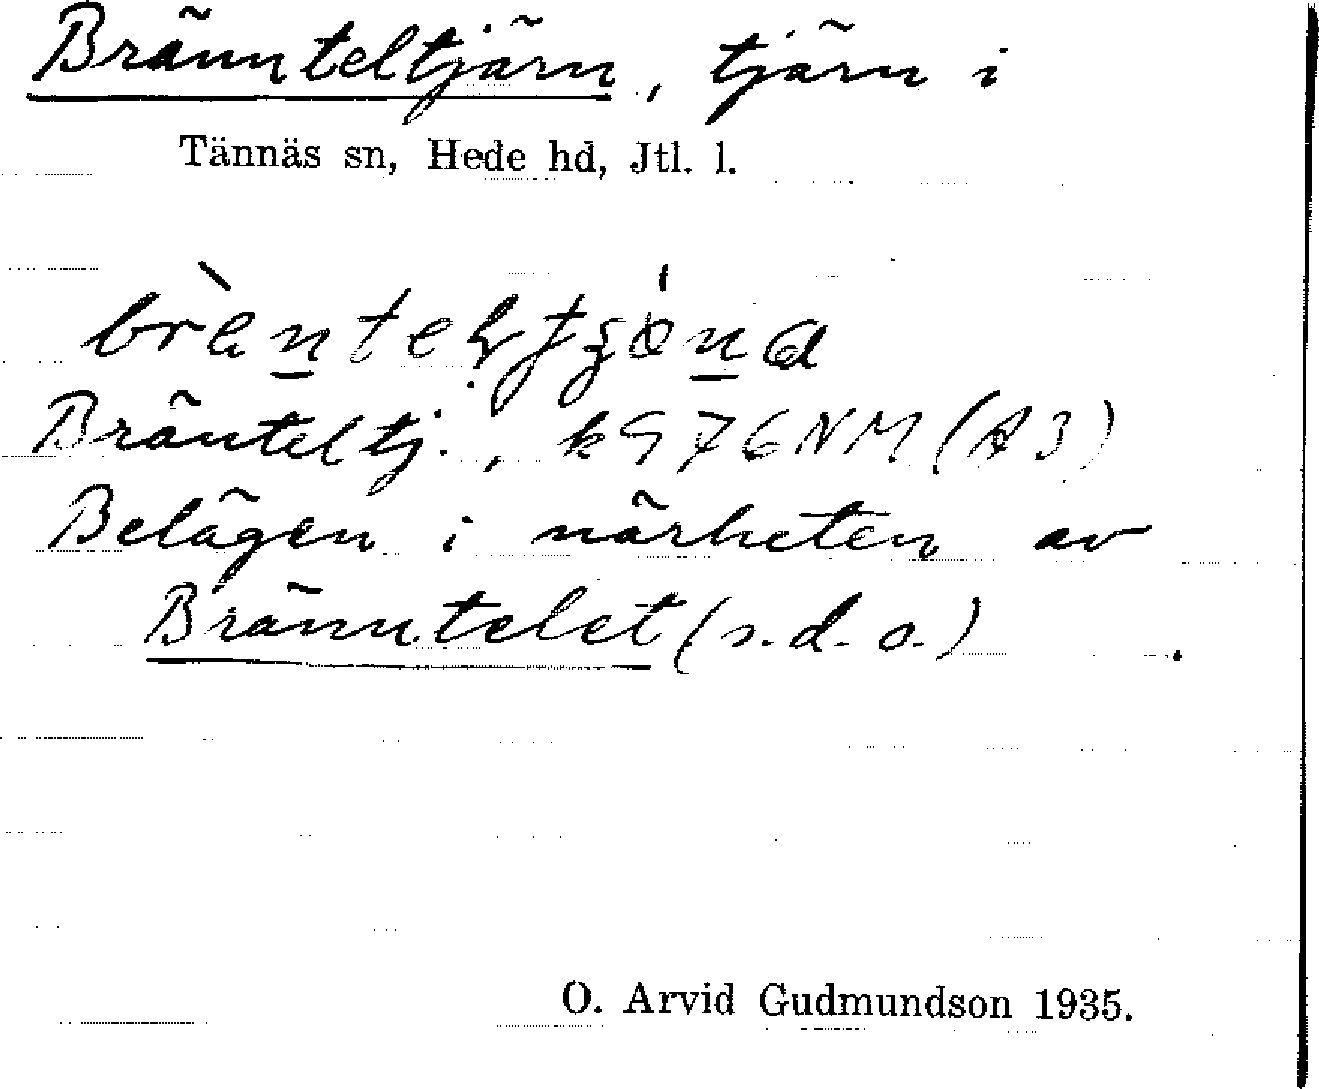 Brännteltjärn, tjärn i
Tännäs sn, Hede hd, Jtl. l.
Bränteltj., k976NM (A3)
Belägen i närheten av
Bränntelet (s.d.o.)
O. Arvid Gudmundson 1935.